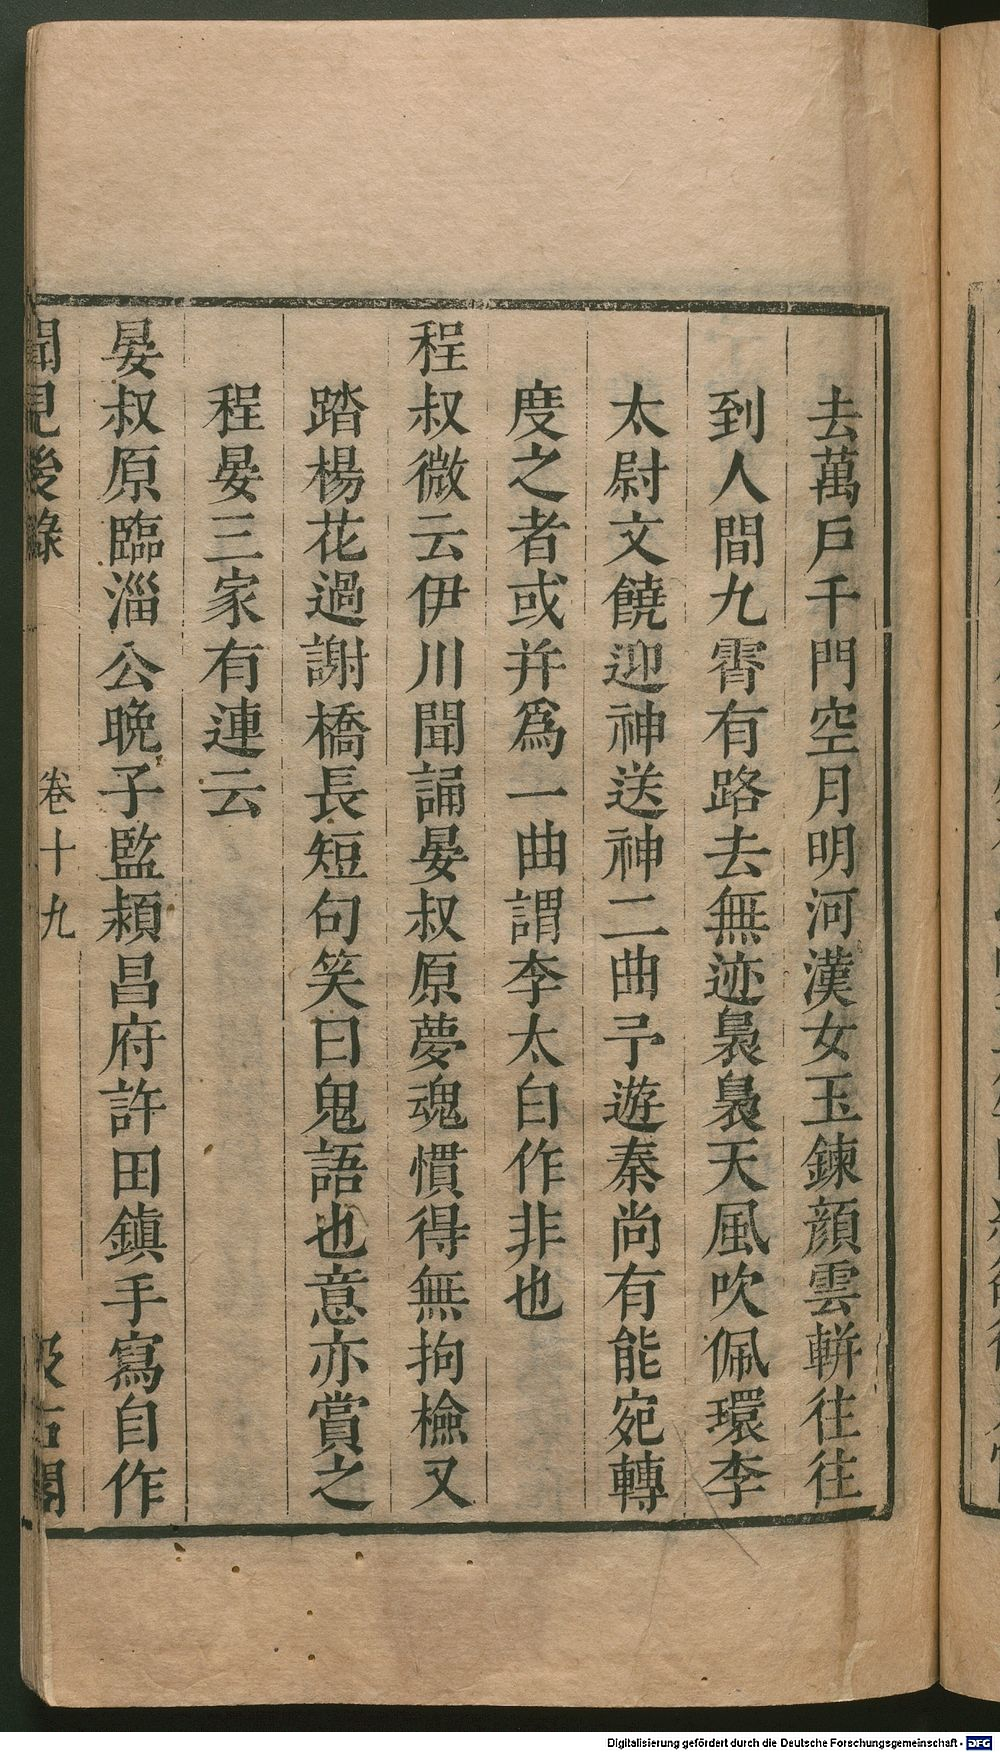 去萬戶千門空月明河漢女玉鍊顔雲軿往往
到人間九霄有路去無迹裊裊天風吹佩環李
太尉文饒迎神送神二曲予遊秦尚有能宛轉
度之者或并爲一曲謂李太白作非也
程叔微云伊川聞誦晏叔原夢魂慣得無拘檢又
踏楊花過謝橋長短句笑曰鬼語也意亦賞之
程晏三家有連云
晏叔原臨淄公晚子監潁昌府許田鎮手寫自作
聞見後錄
卷十九
汲古閣
Digitalisierung gefördert durch die Deutsche Forschungsgemeinschaft - DFG